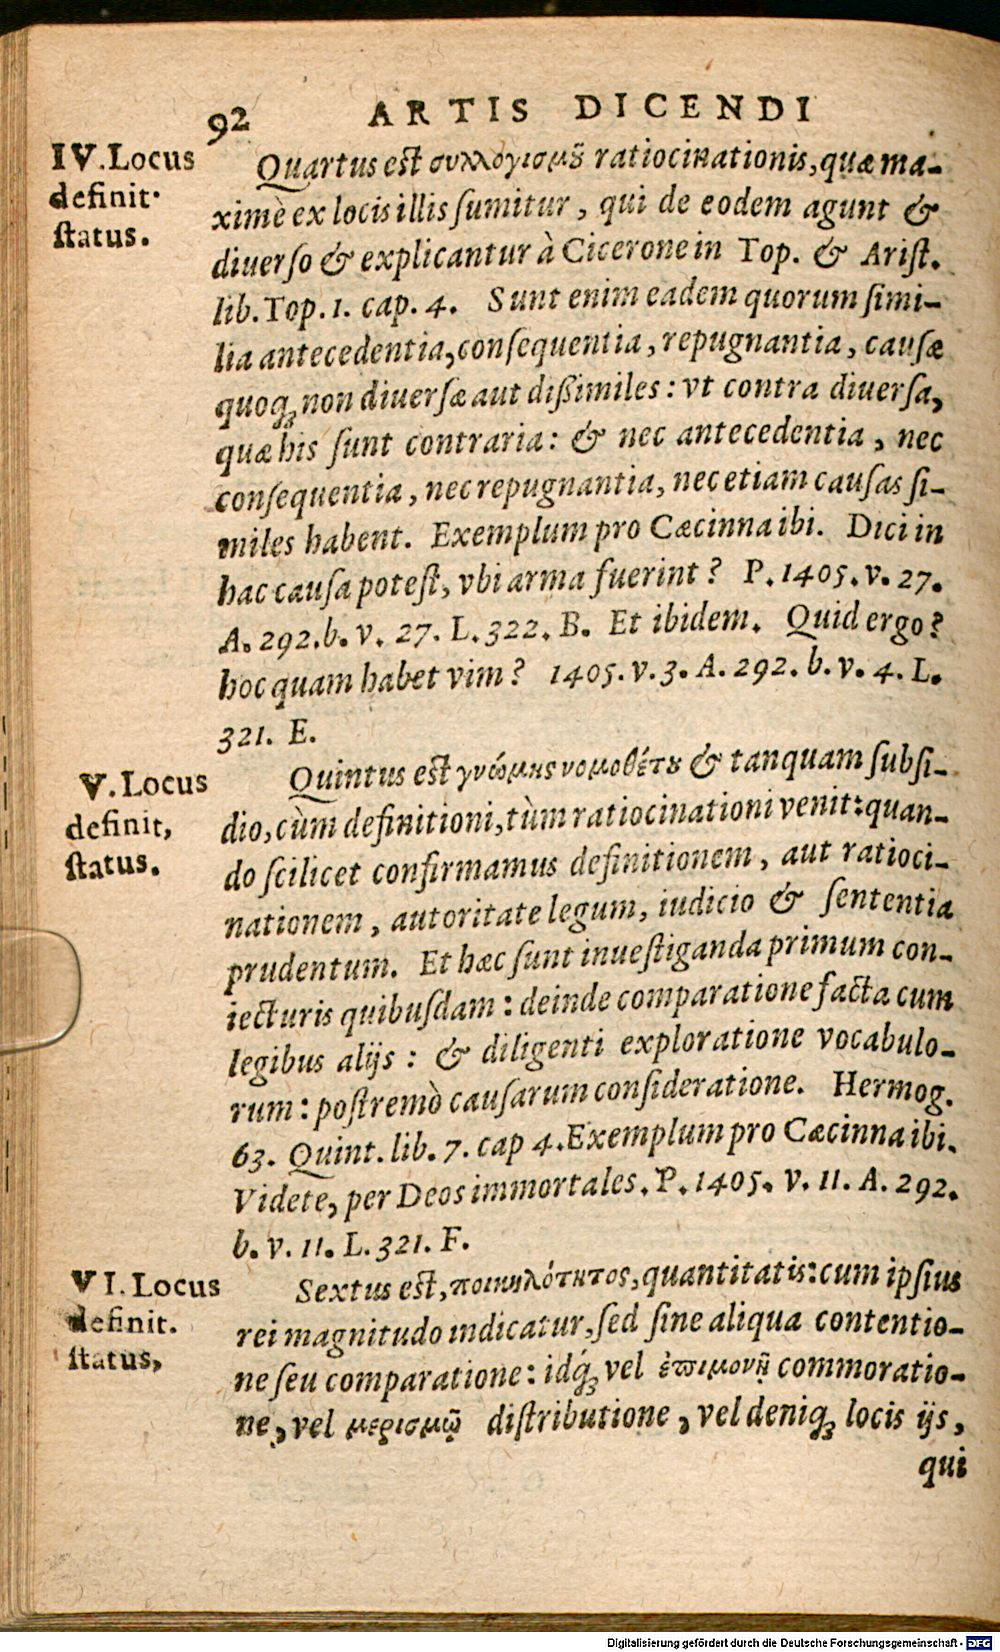 92 ARTIS DICENDI
IV. Locus
definit.
status.
Quartus est συλλογισμȣ͂ ratiocinationis, quæ ma-
ximè ex locis illis sumitur, qui de eodem agunt &
diuerso & explicantur à Cicerone in Top. & Arist.
lib. Top. 1. cap. 4. Sunt enim eadem quorum simi-
lia antecedentia, consequentia, repugnantia, causæ
quoq́ue non diuersæ aut dißimiles: vt contra diuersa,
quæ his sunt contraria: & nec antecedentia, nec
consequentia, nec repugnantia, nec etiam causas si-
miles habent. Exemplum pro Cæcinna ibi. Dici in
hac causa potest, vbi arma fuerint? P. 1405. v. 27.
A. 292. b. v. 27. L. 322. B. Et ibidem. Quid ergo?
hoc quam habet vim? 1405. v. 3. A. 292. b. v. 4. L.
321. E.
V. Locus
definit,
status.
Quintus est γνώμης νομοθέτȣ & tanquam subsi-
dio, cùm definitioni, tùm ratiocinationi venit: quan-
do scilicet confirmamus definitionem, aut ratioci-
nationem, autoritate legum, iudicio & sententia
prudentum. Et hæc sunt inuestiganda primum con-
iecturis quibusdam: deinde comparatione facta cum
legibus alijs: & diligenti exploratione vocabulo-
rum: postremò causarum consideratione. Hermog.
63. Quint. lib. 7. cap 4. Exemplum pro Cæcinna ibi.
Videte, per Deos immortales. P. 1405. v. 11. A. 292.
b. v. 11. L. 321. F.
VI. Locus
definit.
status,
Sextus est, ποιηλότητος, quantitatis: cum ipsius
rei magnitudo indicatur, sed sine aliqua contentio-
ne seu comparatione: idq́ue vel ἐπιμονῇ commoratio-
ne, vel μερισμῷ distributione, vel deniq́ue locis ijs,
qui
Digitalisierung gefördert durch die Deutsche Forschungsgemeinschaft - DFG